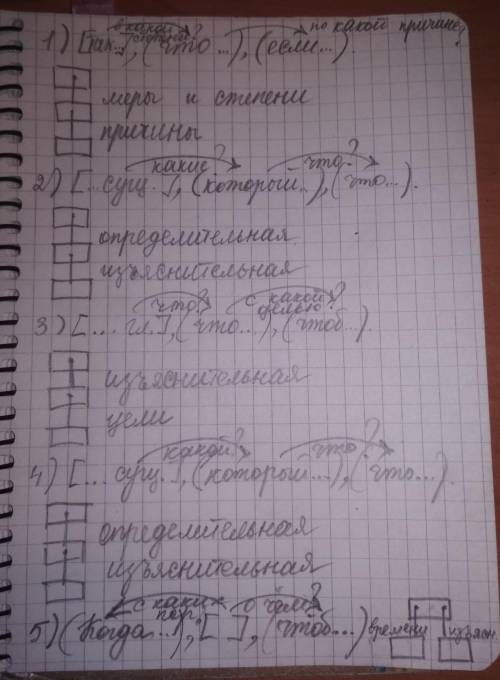 в какой степени? по какой причине?
1) [так...], (что...), (если...).
меры и степени
причины
какие? что?
2) [...сущ..], (который..), (что...).
определительная
изъяснительная
что? с какой целью?
3) [... гл.], (что...), (чтоб...).
изъяснительная
цели
какой? что?
4) [... сущ.], (который...), (что...).
определительная
изъяснительная
с каких пор? о чём?
5) (Когда...), [ ], (чтоб...) времени изъясн.